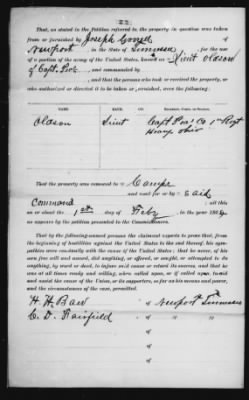 That, as stated in the Petition referred to, the property in question was taken
from or furnished by Joseph
Newport in the State of Tennessee, for the use
of a portion of the army of the United States, known as Lieut
of Capt, and commanded by
, and that the persons who took or received the property, or
who authorized or directed it to be taken or furnished, were the following:
NAME. RANK.
Lieut Capt Co 1st Regt
Heavy Ohio
That the property was removed to Camp
and used for or by said
Command , all this
on or about the 1st day of Feby , in the year 186
as appears by the petition presented to the Commissioners.
That the following-named persons the claimant expects to prove that, from
the beginning of hostilities against the United States to the end thereof, his sym-
pathies were constantly with the cause of the United States; that he never, of his
own free will and accord, did anything, or offered, or sought, or attempted to do
anything, by word or deed, to injure said cause or retard its success, and that he
was at all times ready and willing, when called upon, or if called upon, to aid
and assist the cause of the Union, or its supporters, so far as his means and power,
and the circumstances of the case, permitted.
H. H. Baer of Newport Tennessee
C. D. Fairfield of " "
of
of
of